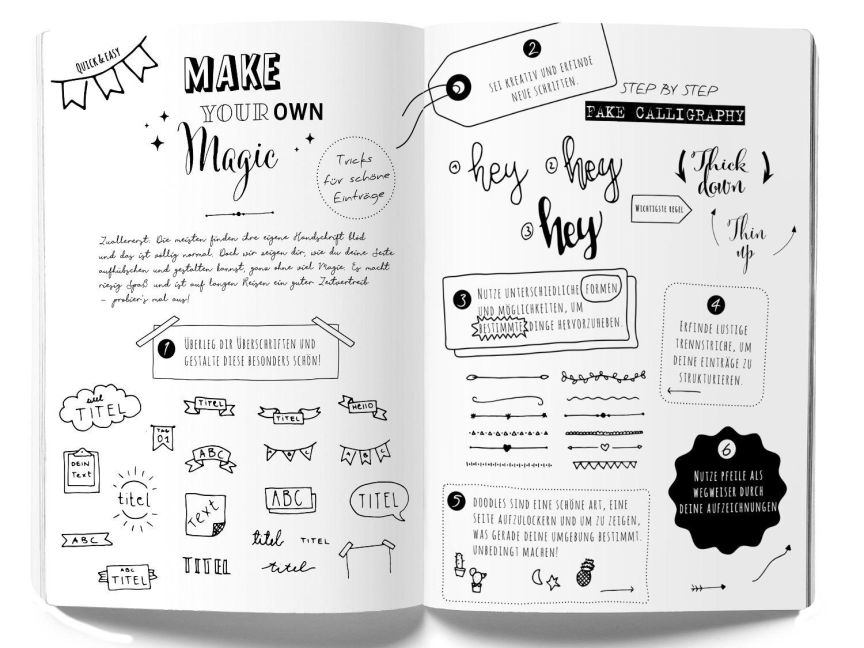 QUICK & EASY
MAKE
YOUR OWN
Magic
Tricks
für schöne
Einträge
Zuallererst: Die meisten finden ihre eigene Handschrift blöd
und das ist völlig normal. Doch wir zeigen dir, wie du deine Seite
aufhübschen und gestalten kannst, ganz ohne viel Magie. Es macht
riesig Spaß und ist auf langen Reisen ein guter Zeitvertreib
– probier's mal aus!
1 ÜBERLEG DIR ÜBERSCHRIFTEN UND
GESTALTE DIESE BESONDERS SCHÖN!
TITEL
TAG
01
TITEL
TITEL
Hello
DEIN
Text
titel
ABC
ABC
ABC
Text
ABC
TITEL
ABC
titel
TITEL
ABC
TITEL
TITEL
titel
2
SEI KREATIV UND ERFINDE
NEUE SCHRIFTEN.
STEP BY STEP
FAKE CALLIGRAPHY
1 hey
2 hey
3 hey
WICHTIGSTE REGEL
Thick
down
Thin
up
3 NUTZE UNTERSCHIEDLICHE FORMEN
UND MÖGLICHKEITEN, UM
BESTIMMTE DINGE HERVORZUHEBEN.
4
ERFINDE LUSTIGE
TRENNSTRICHE, UM
DEINE EINTRÄGE ZU
STRUKTURIEREN.
5 DOODLES SIND EINE SCHÖNE ART, EINE
SEITE AUFZULOCKERN UND UM ZU ZEIGEN,
WAS GERADE DEINE UMGEBUNG BESTIMMT.
UNBEDINGT MACHEN!
6
NUTZE PFEILE ALS
WEGWEISER DURCH
DEINE AUFZEICHNUNGEN